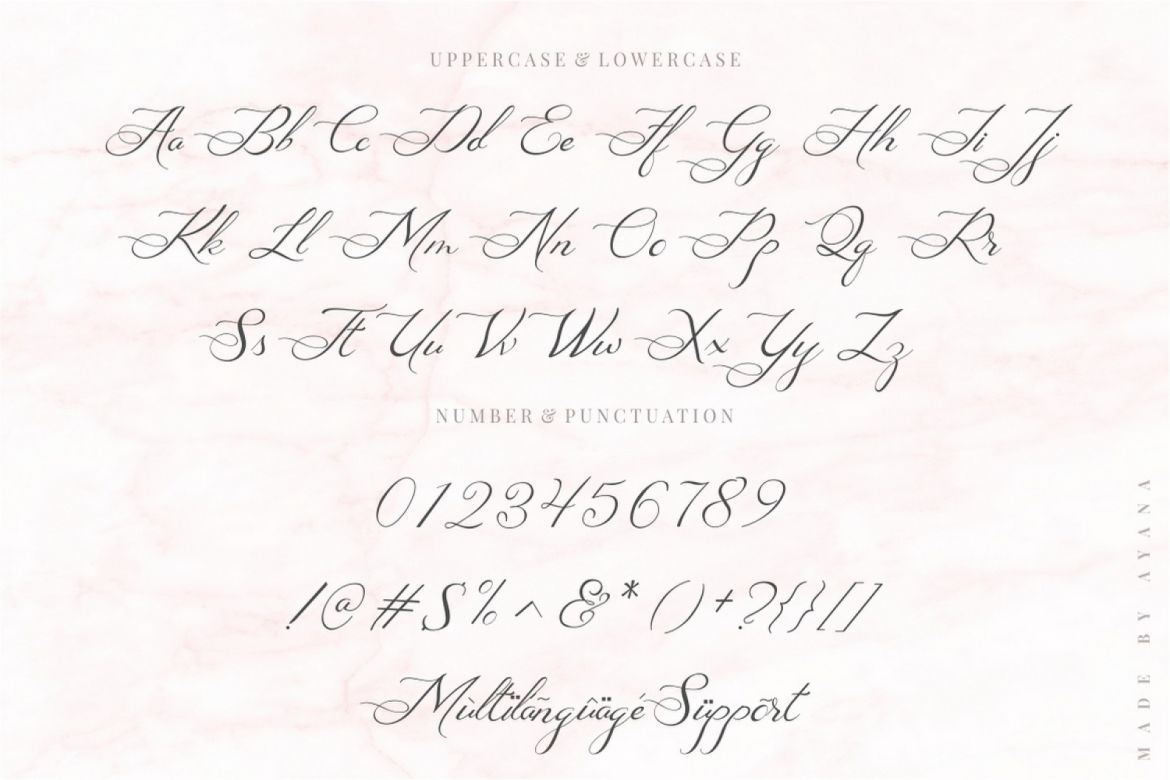 UPPERCASE & LOWERCASE
Aa Bb Cc Dd Ee Ff Gg Hh Ii Jj
Kk Ll Mm Nn Oo Pp Qq Rr
Ss Tt Uu Vv Ww Xx Yy Zz
NUMBER & PUNCTUATION
0123456789
!@#$%^&*()+?{}[]
Mùltïlãngûägé Süppõrt
MADE BY AYANA